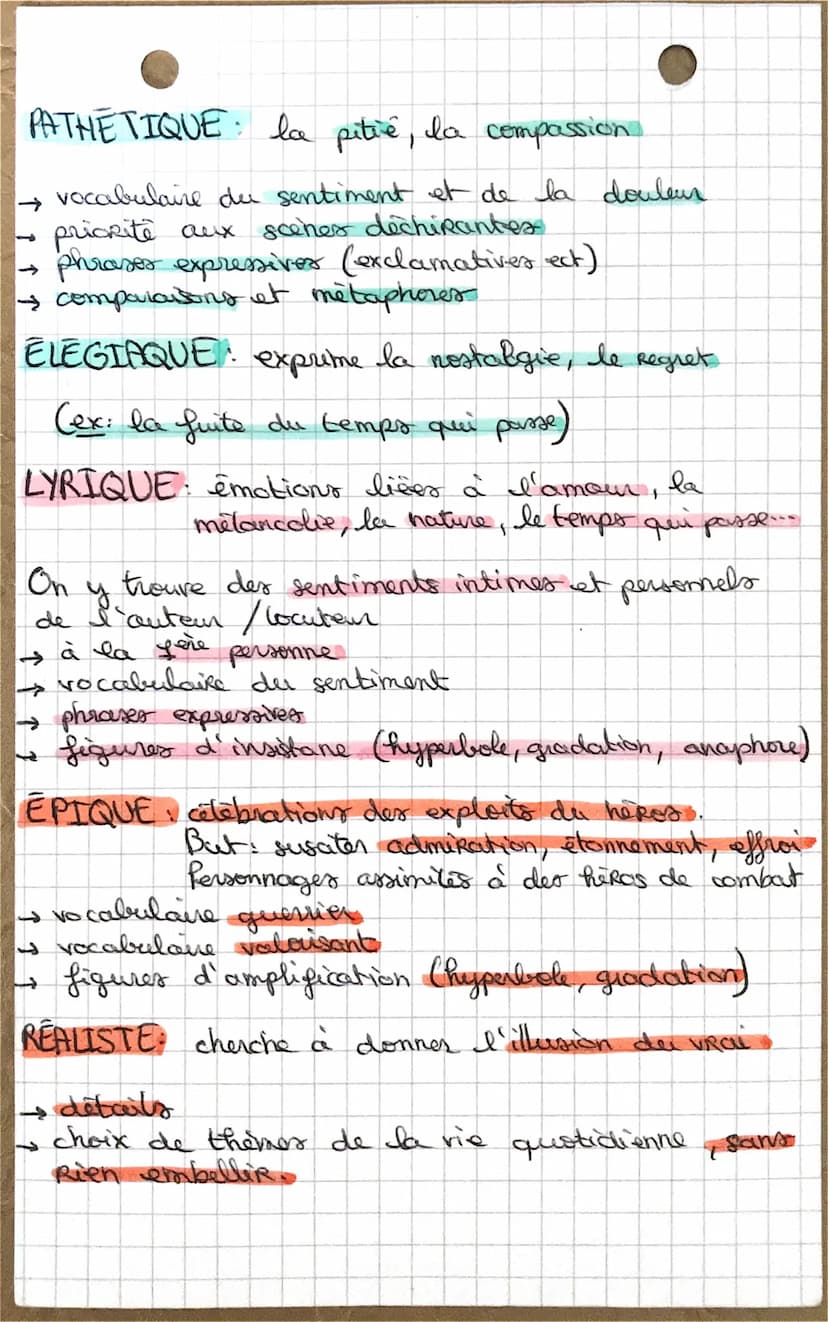 PATHÉTIQUE : la pitié, la compassion
→ vocabulaire du sentiment et de la douleur
→ priorité aux scènes déchirantes
→ phrases expressives (exclamatives ect)
→ comparaisons et métaphores
ÉLÉGIAQUE : exprime la nostalgie, le regret
(ex: la fuite du temps qui passe)
LYRIQUE : émotions liées à l'amour, la
mélancolie, la nature, le temps qui passe...
On y trouve des sentiments intimes et personnels
de l'auteur / locuteur
→ à la 1ère personne
→ vocabulaire du sentiment
→ phrases expressives
→ figures d'insistane (hyperbole, gradation, anaphore)
ÉPIQUE : célébrations des exploits du héros.
But : susciter admiration, étonnement, effroi
Personnages assimilés à des héros de combat
→ vocabulaire guerrier
→ vocabulaire valorisant
→ figures d'amplification (hyperbole, gradation)
RÉALISTE : cherche à donner l'illusion du vrai
→ détails
→ choix de thèmes de la vie quotidienne, sans
rien embellir.